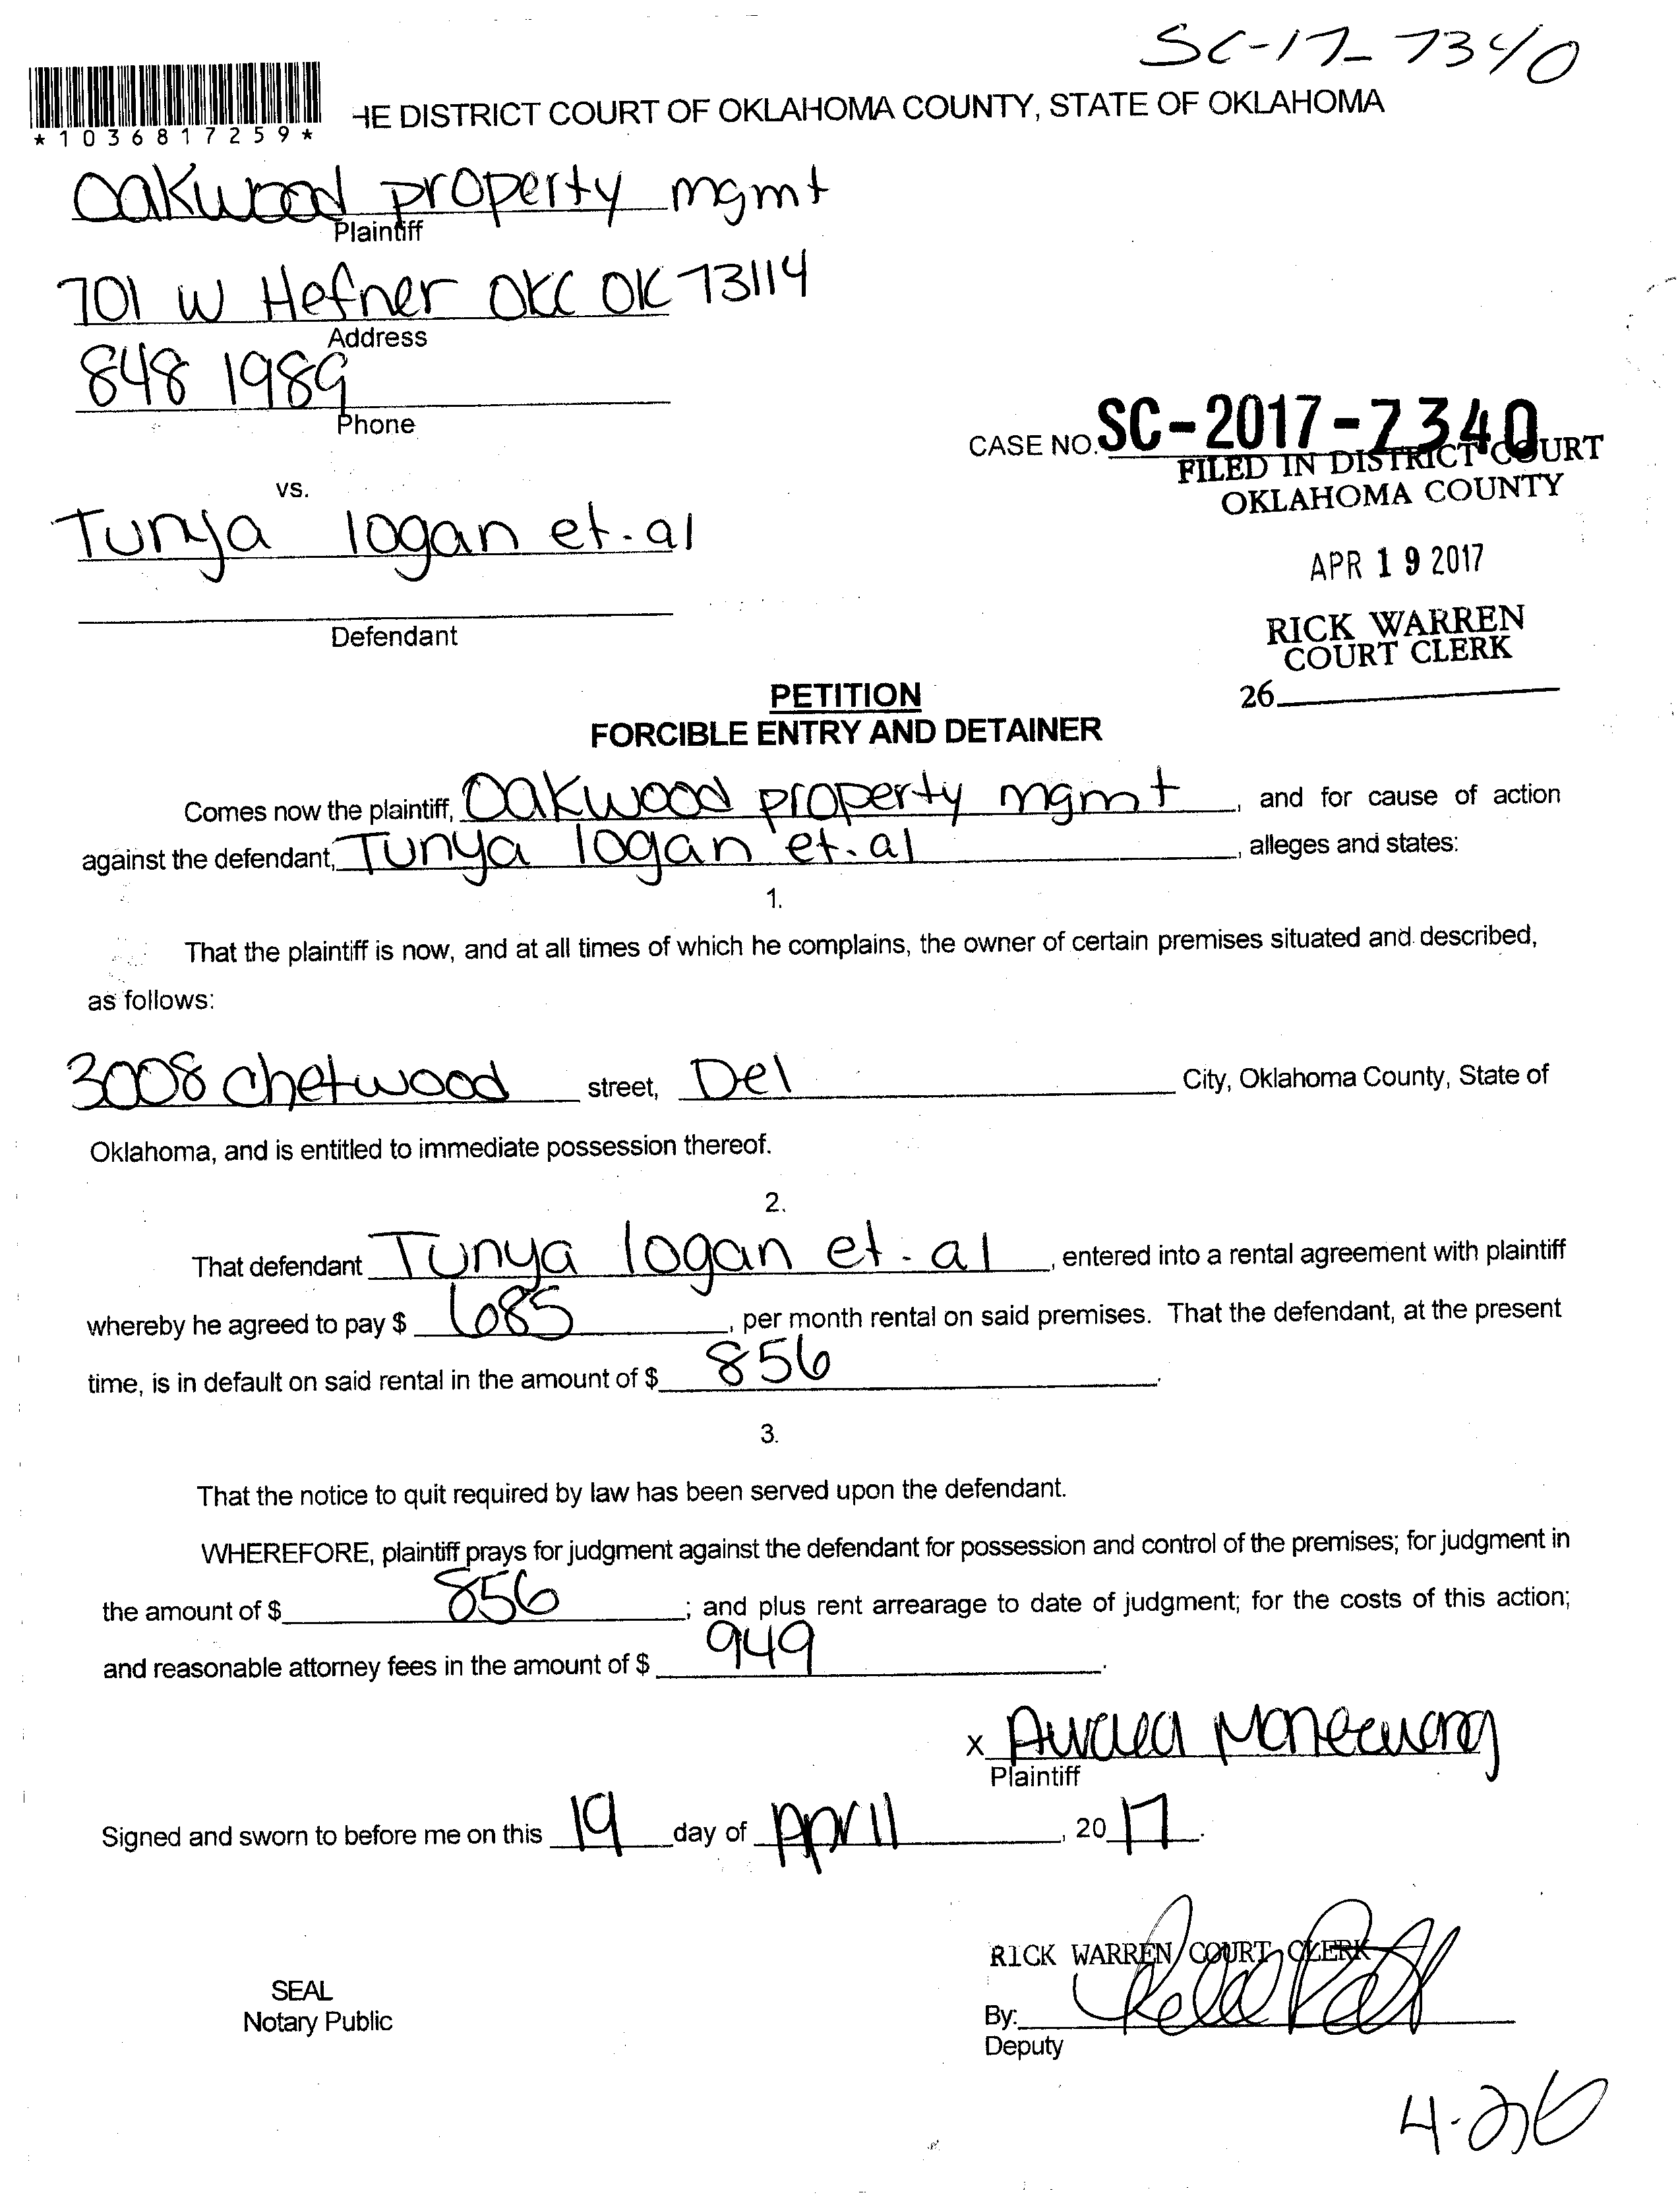 SC-17-7340
*1036817259*
HE DISTRICT COURT OF OKLAHOMA COUNTY, STATE OF OKLAHOMA
Oakwood property mgmt
Plaintiff
701 W Hefner OKC OK 73114
Address
848 1989
Phone
CASE NO. SC-2017-7340
FILED IN DISTRICT COURT
OKLAHOMA COUNTY
vs.
Tunya logan et.al
APR 19 2017
Defendant
RICK WARREN
COURT CLERK
26
PETITION
FORCIBLE ENTRY AND DETAINER
Comes now the plaintiff, Oakwood property mgmt, and for cause of action
against the defendant, Tunya logan et.al, alleges and states:
1.
That the plaintiff is now, and at all times of which he complains, the owner of certain premises situated and described,
as follows:
3008 Chetwood street, Del City, Oklahoma County, State of
Oklahoma, and is entitled to immediate possession thereof.
2.
That defendant Tunya logan et.al, entered into a rental agreement with plaintiff
whereby he agreed to pay $ 685, per month rental on said premises. That the defendant, at the present
time, is in default on said rental in the amount of $ 856.
3.
That the notice to quit required by law has been served upon the defendant.
WHEREFORE, plaintiff prays for judgment against the defendant for possession and control of the premises; for judgment in
the amount of $ 856; and plus rent arrearage to date of judgment; for the costs of this action;
and reasonable attorney fees in the amount of $ 949.
X
Plaintiff
Signed and sworn to before me on this 19 day of April, 2017.
RICK WARREN COURT CLERK
SEAL
Notary Public
By:
Deputy
4-26